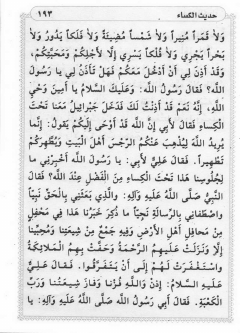 حديث الكساء ١٩٣
وَلَا قَمَراً مُنِيراً وَلَا شَمْساً مُضِيئَةً وَلَا فَلَكاً يَدُورُ وَلَا
بَحْراً يَجْرِي وَلَا فُلْكاً يَسْرِي إِلَّا لِأَجْلِكُمْ وَمَحَبَّتِكُمْ،
وَقَدْ أَذِنَ لِي أَنْ أَدْخُلَ مَعَكُمْ فَهَلْ تَأْذَنُ لِي يَا رَسُولَ
اللَّهِ؟ فَقَالَ رَسُولُ اللَّهِ: وَعَلَيْكَ السَّلَامُ يَا أَمِينَ وَحْيِ
اللَّهِ، إِنَّهُ نَعَمْ قَدْ أَذِنْتُ لَكَ فَدَخَلَ جَبْرَائِيلُ مَعَنَا تَحْتَ
الْكِسَاءِ فَقَالَ لِأَبِي إِنَّ اللَّهَ قَدْ أَوْحَى إِلَيْكُمْ يَقُولُ: إِنَّمَا
يُرِيدُ اللَّهُ لِيُذْهِبَ عَنْكُمُ الرِّجْسَ أَهْلَ الْبَيْتِ وَيُطَهِّرَكُمْ
تَطْهِيراً. فَقَالَ عَلِيٌّ لِأَبِي: يَا رَسُولَ اللَّهِ أَخْبِرْنِي مَا
لِجُلُوسِنَا هَذَا تَحْتَ الْكِسَاءِ مِنَ الْفَضْلِ عِنْدَ اللَّهِ؟ فَقَالَ
النَّبِيُّ صَلَّى اللَّهُ عَلَيْهِ وَآلِهِ: وَالَّذِي بَعَثَنِي بِالْحَقِّ نَبِيّاً
وَاصْطَفَانِي بِالرِّسَالَةِ نَجِيّاً مَا ذُكِرَ خَبَرُنَا هَذَا فِي مَحْفِلٍ
مِنْ مَحَافِلِ أَهْلِ الْأَرْضِ وَفِيهِ جَمْعٌ مِنْ شِيعَتِنَا وَمُحِبِّينَا
إِلَّا وَنَزَلَتْ عَلَيْهِمُ الرَّحْمَةُ وَحَفَّتْ بِهِمُ الْمَلَائِكَةُ
وَاسْتَغْفَرَتْ لَهُمْ إِلَى أَنْ يَتَفَرَّقُوا. فَقَالَ عَلِيٌّ
عَلَيْهِ السَّلَامُ: إِذَنْ وَاللَّهِ فُزْنَا وَفَازَ شِيعَتُنَا وَرَبِّ
الْكَعْبَةِ. فَقَالَ أَبِي رَسُولُ اللَّهِ صَلَّى اللَّهُ عَلَيْهِ وَآلِهِ: يَا